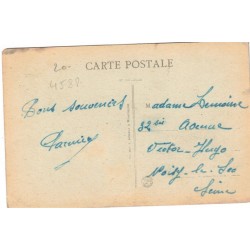 20
4588
CARTE POSTALE
Bons souvenirs
Madame Lemoine
32bis Avenue
Victor-Hugo
Noisy-le-Sec
Seine